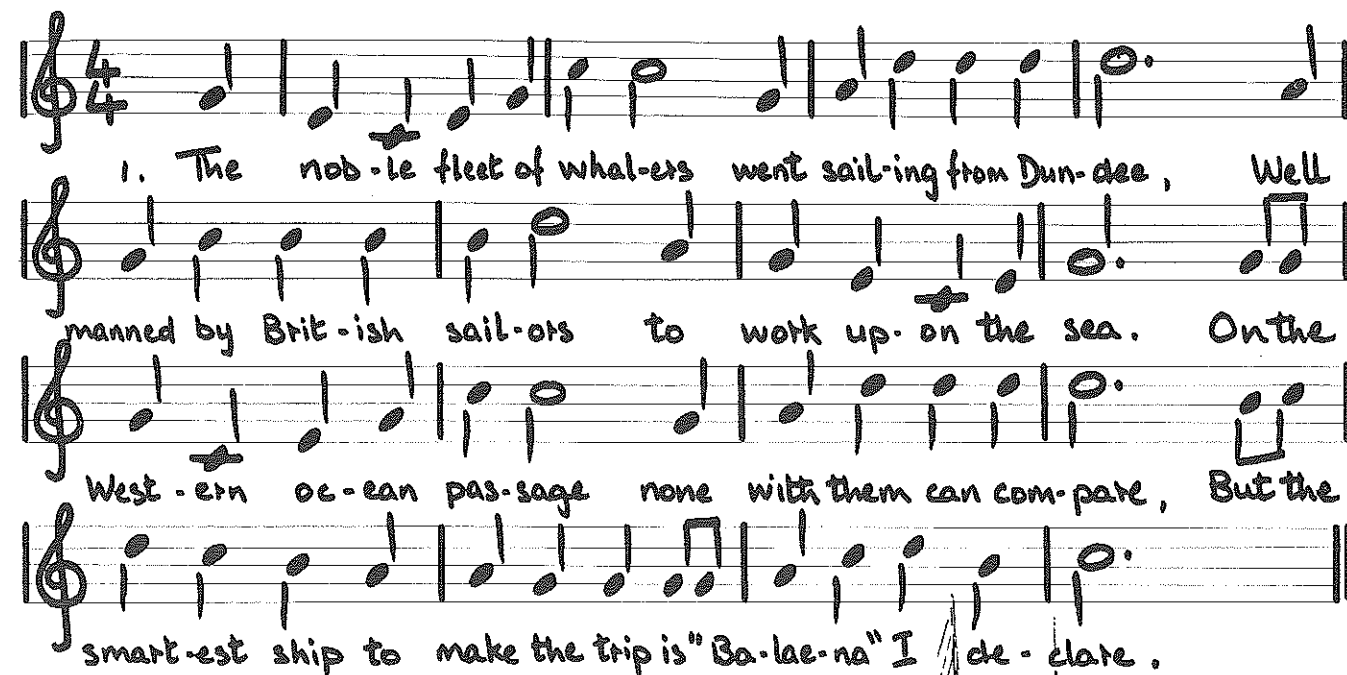 4
4
1. The nob-le fleet of whal-ers went sail-ing from Dun-dee, Well
manned by Brit-ish sail-ors to work up-on the sea. On the
West-ern oc-ean pas-sage none with them can com-pare, But the
smart-est ship to make the trip is "Ba-lae-na" I de-clare.